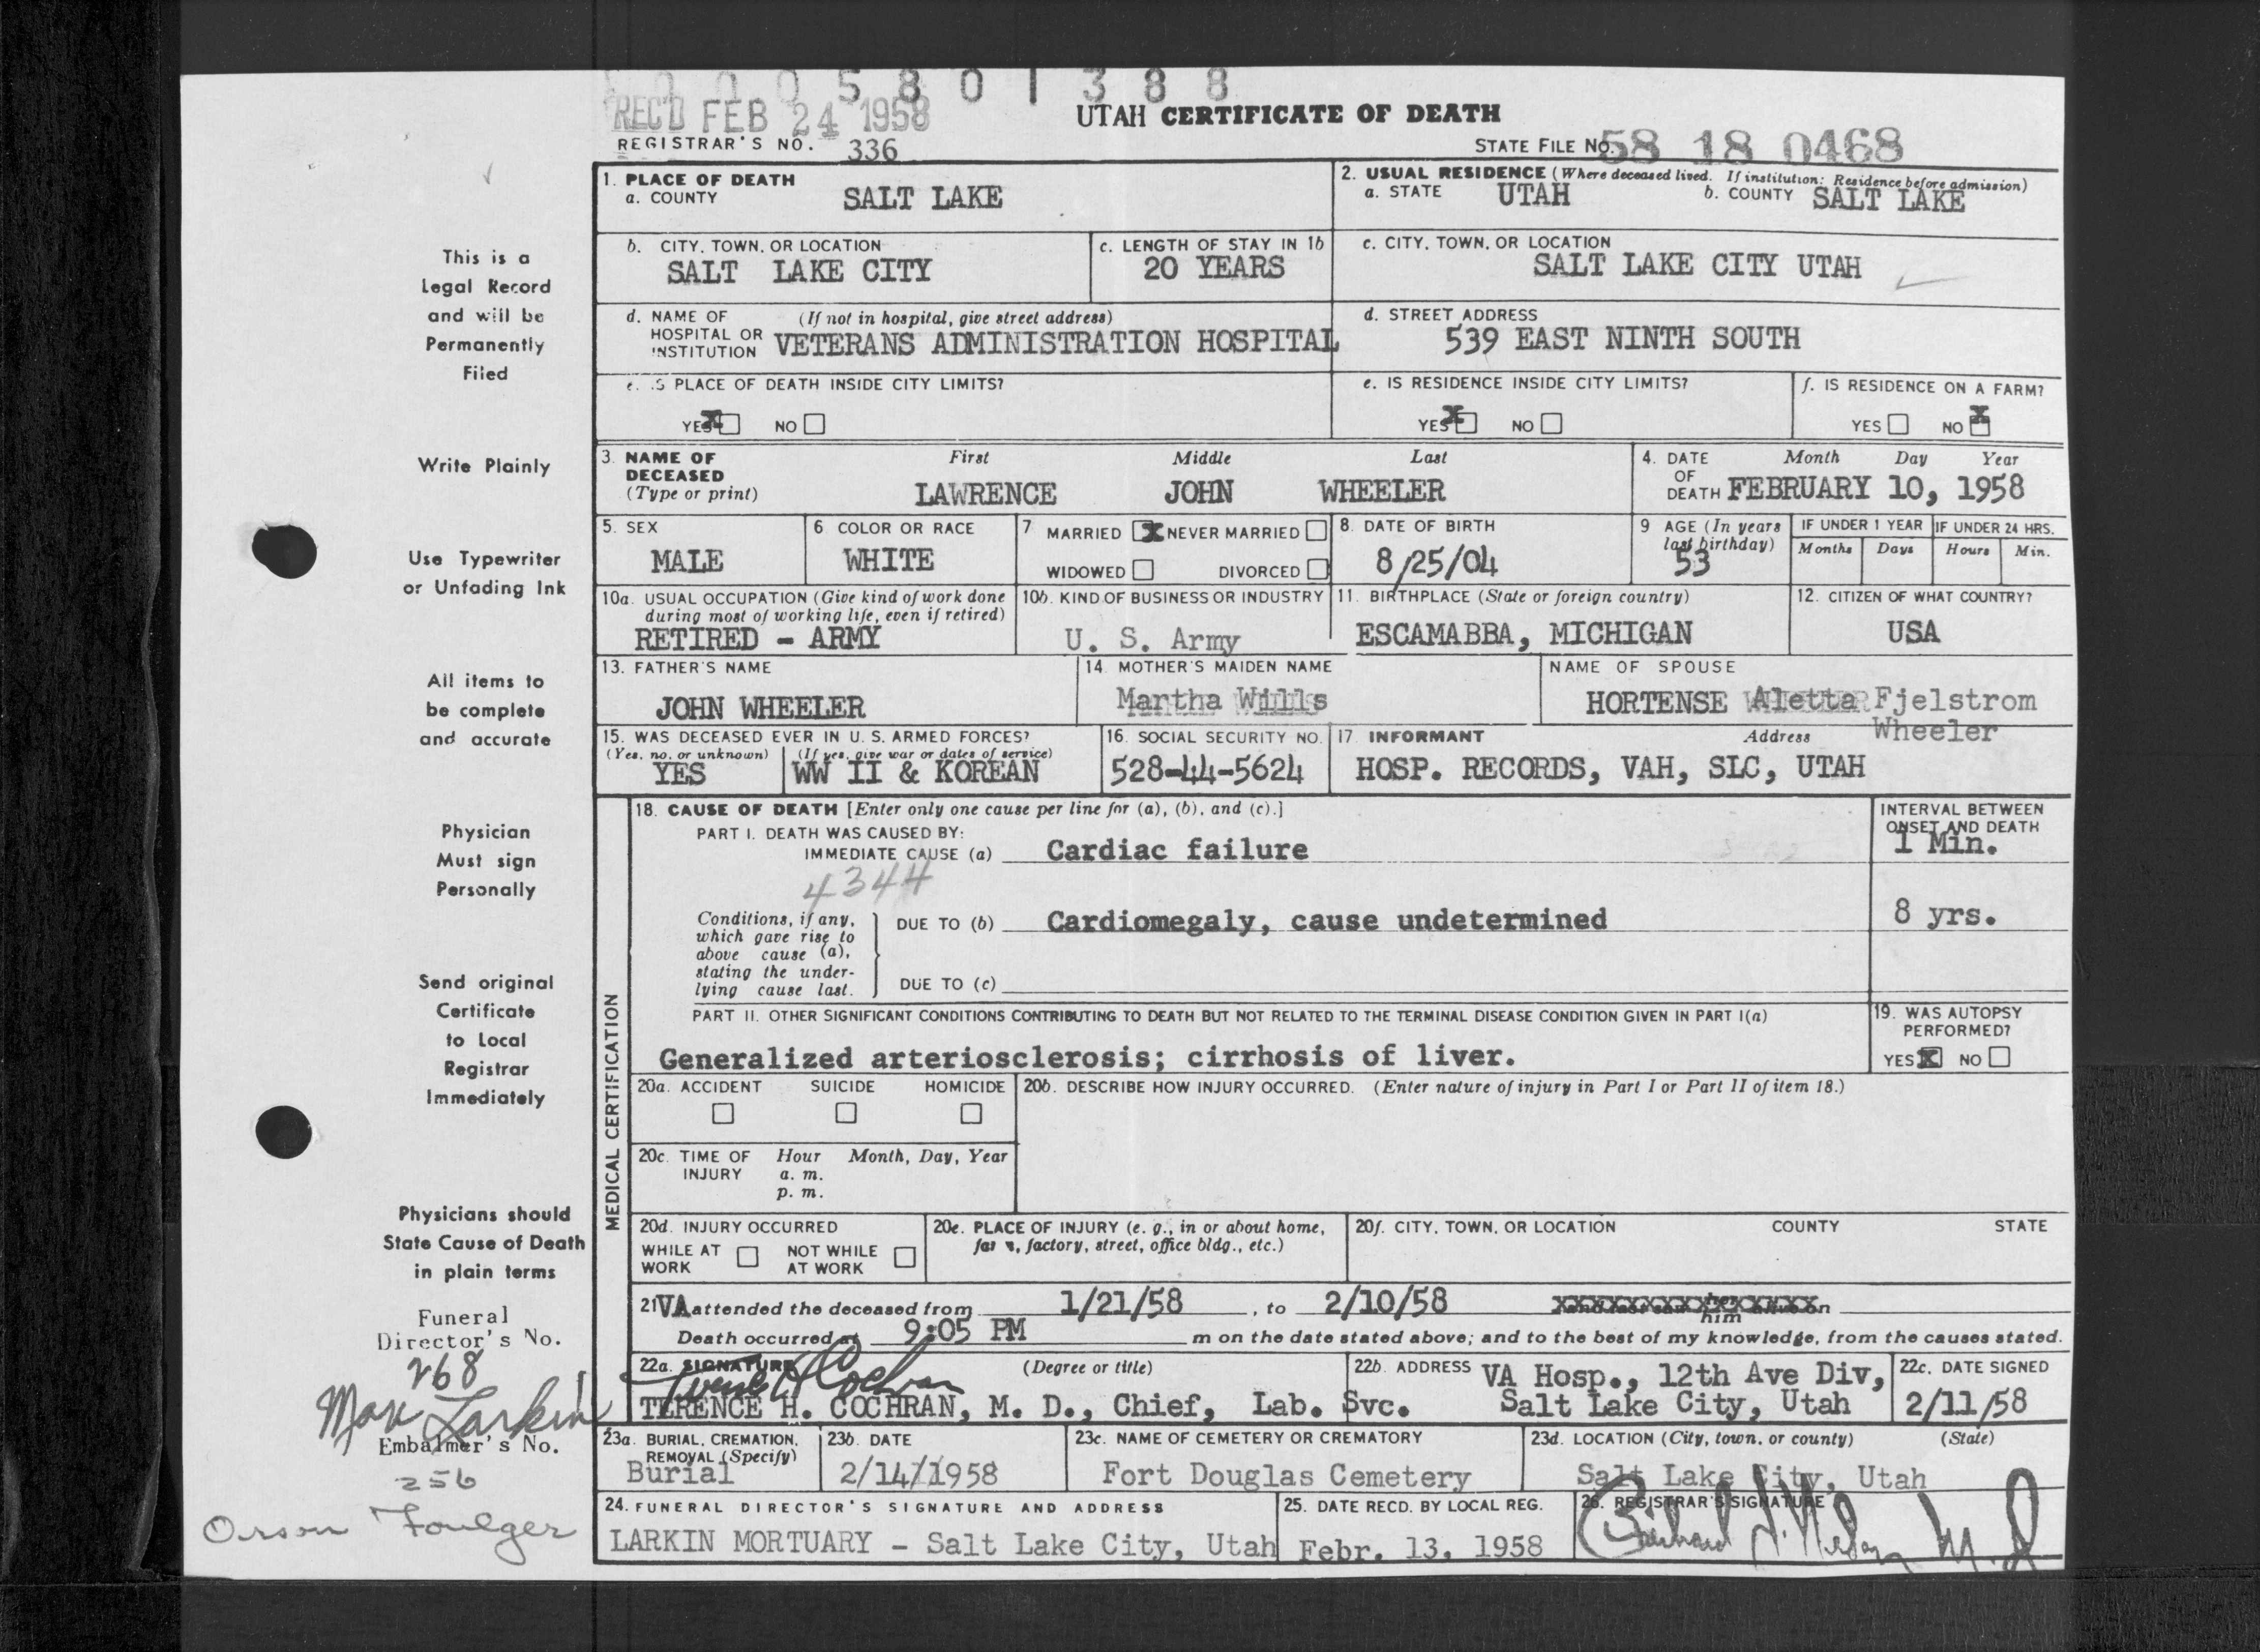 0 0 0 5 8 0 1 3 8 8
REC'D FEB 24 1958
UTAH CERTIFICATE OF DEATH
REGISTRAR'S NO. 336
STATE FILE NO. 58 18 0468
1. PLACE OF DEATH
a. COUNTY SALT LAKE
2. USUAL RESIDENCE (Where deceased lived. If institution: Residence before admission)
a. STATE UTAH b. COUNTY SALT LAKE
b. CITY, TOWN, OR LOCATION
SALT LAKE CITY
c. LENGTH OF STAY IN 1b
20 YEARS
c. CITY, TOWN, OR LOCATION
SALT LAKE CITY UTAH
d. NAME OF (If not in hospital, give street address)
HOSPITAL OR
INSTITUTION VETERANS ADMINISTRATION HOSPITAL
d. STREET ADDRESS
539 EAST NINTH SOUTH
e. IS PLACE OF DEATH INSIDE CITY LIMITS?
YES X NO
e. IS RESIDENCE INSIDE CITY LIMITS?
YES X NO
f. IS RESIDENCE ON A FARM?
YES NO X
3. NAME OF
DECEASED
(Type or print)
First Middle Last
LAWRENCE JOHN WHEELER
4. DATE Month Day Year
OF
DEATH FEBRUARY 10, 1958
5. SEX
MALE
6. COLOR OR RACE
WHITE
7 MARRIED X NEVER MARRIED
WIDOWED DIVORCED
8. DATE OF BIRTH
8/25/04
9 AGE (In years
last birthday)
53
IF UNDER 1 YEAR
Months Days
IF UNDER 24 HRS.
Hours Min.
10a. USUAL OCCUPATION (Give kind of work done
during most of working life, even if retired)
RETIRED - ARMY
10b. KIND OF BUSINESS OR INDUSTRY
U. S. Army
11. BIRTHPLACE (State or foreign country)
ESCAMABBA, MICHIGAN
12. CITIZEN OF WHAT COUNTRY?
USA
13. FATHER'S NAME
JOHN WHEELER
14. MOTHER'S MAIDEN NAME
Martha Wills
NAME OF SPOUSE
HORTENSE Aletta Fjelstrom
Wheeler
15. WAS DECEASED EVER IN U. S. ARMED FORCES?
(Yes, no, or unknown) (If yes, give war or dates of service)
YES WW II & KOREAN
16. SOCIAL SECURITY NO.
528-44-5624
17. INFORMANT Address
HOSP. RECORDS, VAH, SLC, UTAH
MEDICAL CERTIFICATION
18. CAUSE OF DEATH [Enter only one cause per line for (a), (b), and (c).]
PART I. DEATH WAS CAUSED BY:
IMMEDIATE CAUSE (a) Cardiac failure
INTERVAL BETWEEN
ONSET AND DEATH
1 Min.
4344
Conditions, if any,
which gave rise to
above cause (a),
stating the under-
lying cause last.
DUE TO (b) Cardiomegaly, cause undetermined
8 yrs.
DUE TO (c)
PART II. OTHER SIGNIFICANT CONDITIONS CONTRIBUTING TO DEATH BUT NOT RELATED TO THE TERMINAL DISEASE CONDITION GIVEN IN PART I(a)
Generalized arteriosclerosis; cirrhosis of liver.
19. WAS AUTOPSY
PERFORMED?
YES X NO
20a. ACCIDENT SUICIDE HOMICIDE
20b. DESCRIBE HOW INJURY OCCURRED. (Enter nature of injury in Part I or Part II of item 18.)
20c. TIME OF Hour Month, Day, Year
INJURY a. m.
p. m.
20d. INJURY OCCURRED
WHILE AT NOT WHILE
WORK AT WORK
20e. PLACE OF INJURY (e. g., in or about home,
farm, factory, street, office bldg., etc.)
20f. CITY, TOWN, OR LOCATION COUNTY STATE
21 VA attended the deceased from 1/21/58, to 2/10/58 her on
him
Death occurred at 9:05 PM m on the date stated above; and to the best of my knowledge, from the causes stated.
22a. SIGNATURE (Degree or title)
Terence H Cochran
TERENCE H. COCHRAN, M. D., Chief, Lab. Svc.
22b. ADDRESS VA Hosp., 12th Ave Div,
Salt Lake City, Utah
22c. DATE SIGNED
2/11/58
23a. BURIAL, CREMATION,
REMOVAL (Specify)
Burial
23b. DATE
2/14/1958
23c. NAME OF CEMETERY OR CREMATORY
Fort Douglas Cemetery
23d. LOCATION (City, town, or county) (State)
Salt Lake City, Utah
24. FUNERAL DIRECTOR'S SIGNATURE AND ADDRESS
LARKIN MORTUARY - Salt Lake City, Utah
25. DATE RECD. BY LOCAL REG.
Febr. 13, 1958
26. REGISTRAR'S SIGNATURE
This is a
Legal Record
and will be
Permanently
Filed
Write Plainly
Use Typewriter
or Unfading Ink
All items to
be complete
and accurate
Physician
Must sign
Personally
Send original
Certificate
to Local
Registrar
Immediately
Physicians should
State Cause of Death
in plain terms
Funeral
Director's No.
268
Max Larkin
Embalmer's No.
256
Orson Foulger